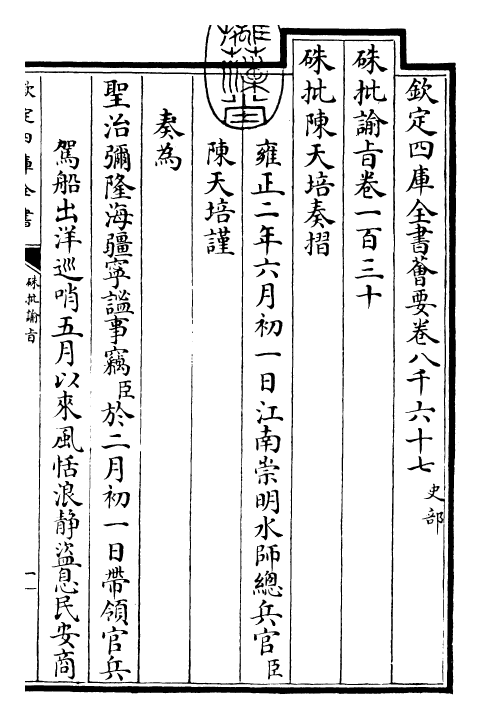 欽定四庫全書薈要卷八千六十七 史部
硃批諭旨卷一百三十
硃批陳天培奏摺
雍正二年六月初一日江南崇明水師總兵官臣
陳天培謹
奏為
聖治彌隆海疆寧謐事竊臣於二月初一日帶領官兵
駕船出洋巡哨五月以來風恬浪静盜息民安商
欽定四庫全書
硃批諭旨
一